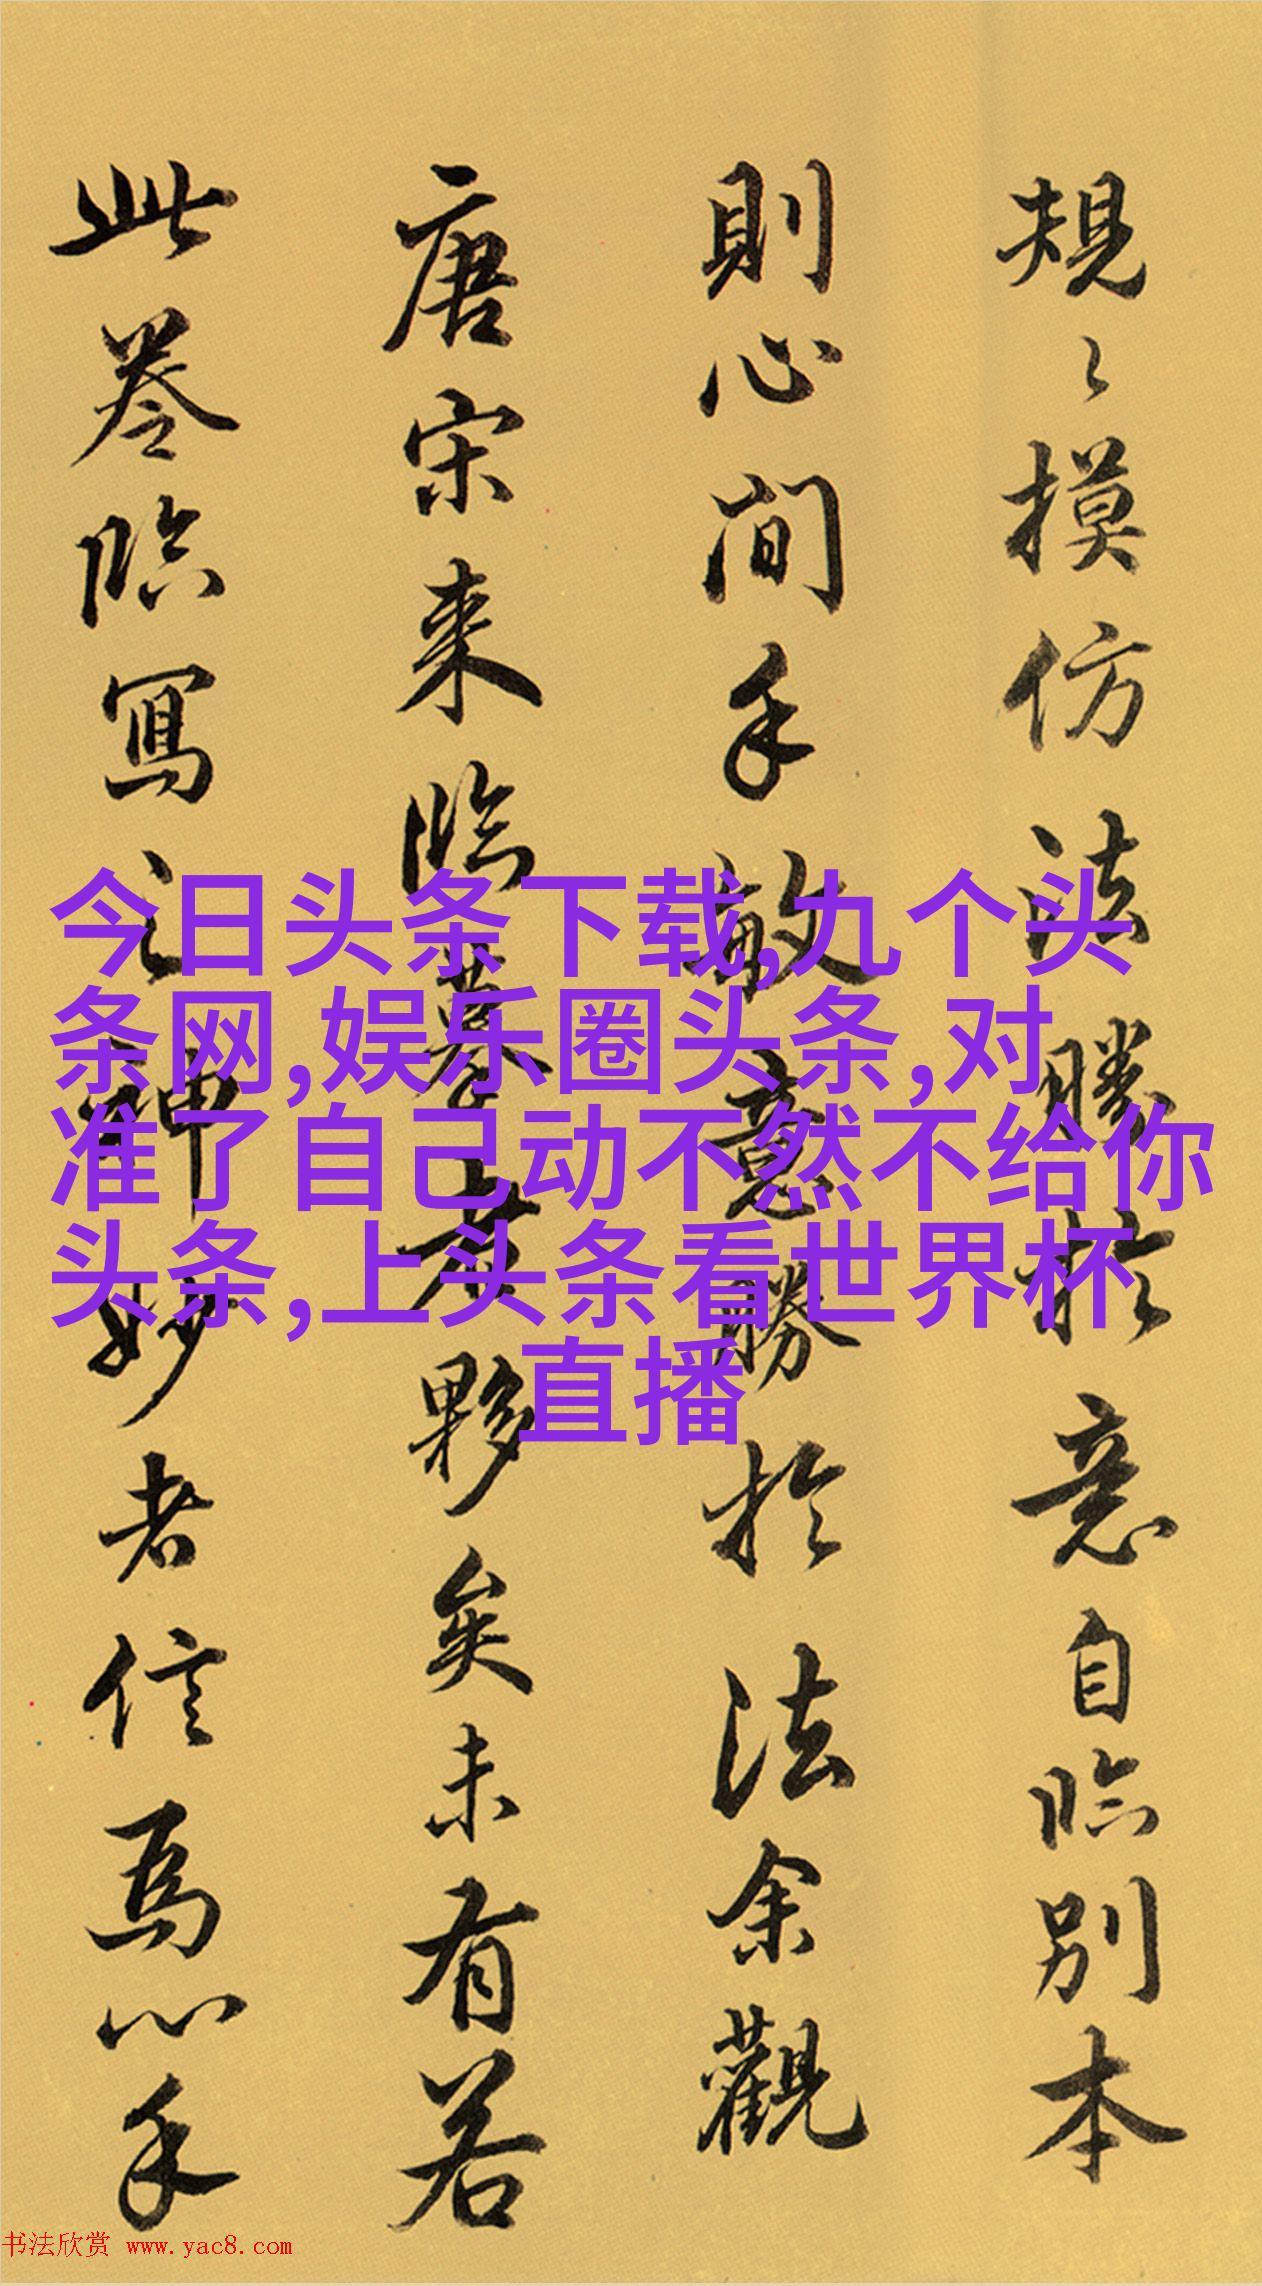 規〻摸仿法勝扵意自临别本
則心間手敏意勝扵法余觀
唐宋来临摹者夥矣未有若
此卷临寫之神妙者信乎心手
今日头条下载,九个头
条网,娱乐圈头条,对
准了自己动不然不给你
头条,上头条看世界杯
直播
书法欣赏 www.yac8.com